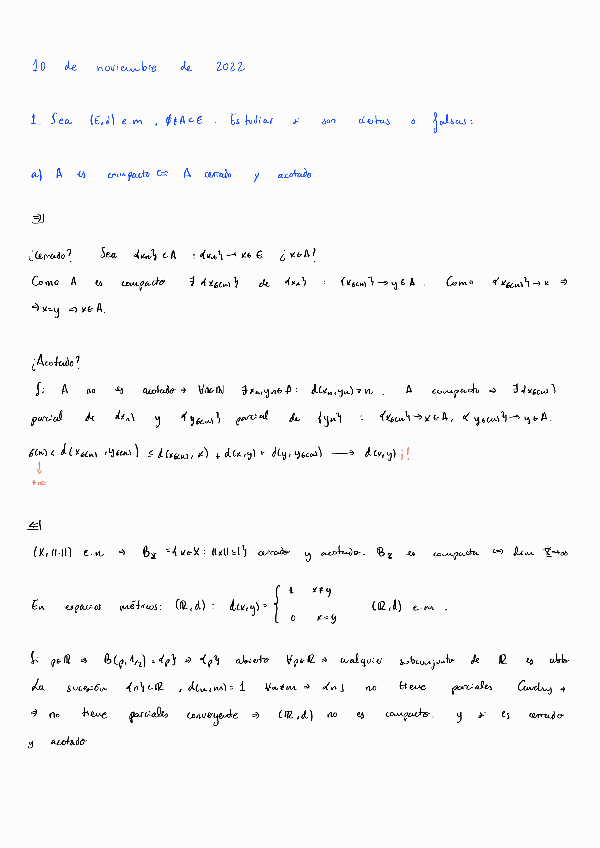 10 de noviembre de 2022
1. Sea (E,d) e.m , ∅≠A⊂E . Estudiar si son ciertas o falsas:
a) A es compacto ⇔ A cerrado y acotado
⇒)
¿Cerrado? Sea {xn} ⊂ A : {xn} → x ∈ E ¿ x∈A?
Como A es compacto ∃ {xσ(n)} de {xn} : {xσ(n)} → y ∈ A . Como {xσ(n)} → x ⇒
⇒ x=y ⇒ x∈A.
¿Acotado?
Si A no es acotado ⇒ ∀n∈ℕ ∃xn,yn∈A: d(xn,yn)>n . A compacto ⇒ ∃{xσ(n)}
parcial de {xn} y {yσ(n)} parcial de {yn} : {xσ(n)} → x∈A, {yσ(n)} → y∈A.
σ(n) < d(xσ(n),yσ(n)) ≤ d(xσ(n),x) + d(x,y) + d(y,yσ(n)) ⟶ d(x,y) ¡!
↓
+∞
⇐)
(X,||·||) e.n ⇒ Bx = {x∈X : ||x||≤1} cerrado y acotado. Bx es compacta ⇔ dim X<+∞
En espacios métricos: (ℝ,d) : d(x,y) = { 1 x≠y
0 x=y (ℝ,d) e.m .
Si p∈ℝ ⇒ B(p,1/2) = {p} ⇒ {p} abierto ∀p∈ℝ ⇒ cualquier subconjunto de ℝ es abto
La sucesión {n}⊂ℝ , d(n,m)=1 ∀n≠m ⇒ {n} no tiene parciales Cauchy ⇒
⇒ no tiene parciales convergente ⇒ (ℝ,d) no es compacto. y si es cerrado
y acotado